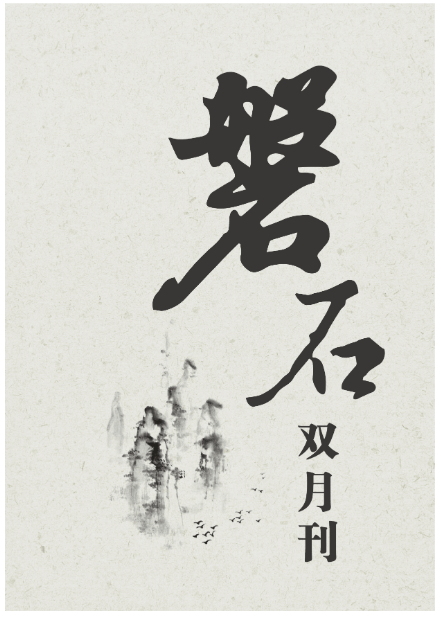 磐石
双月刊